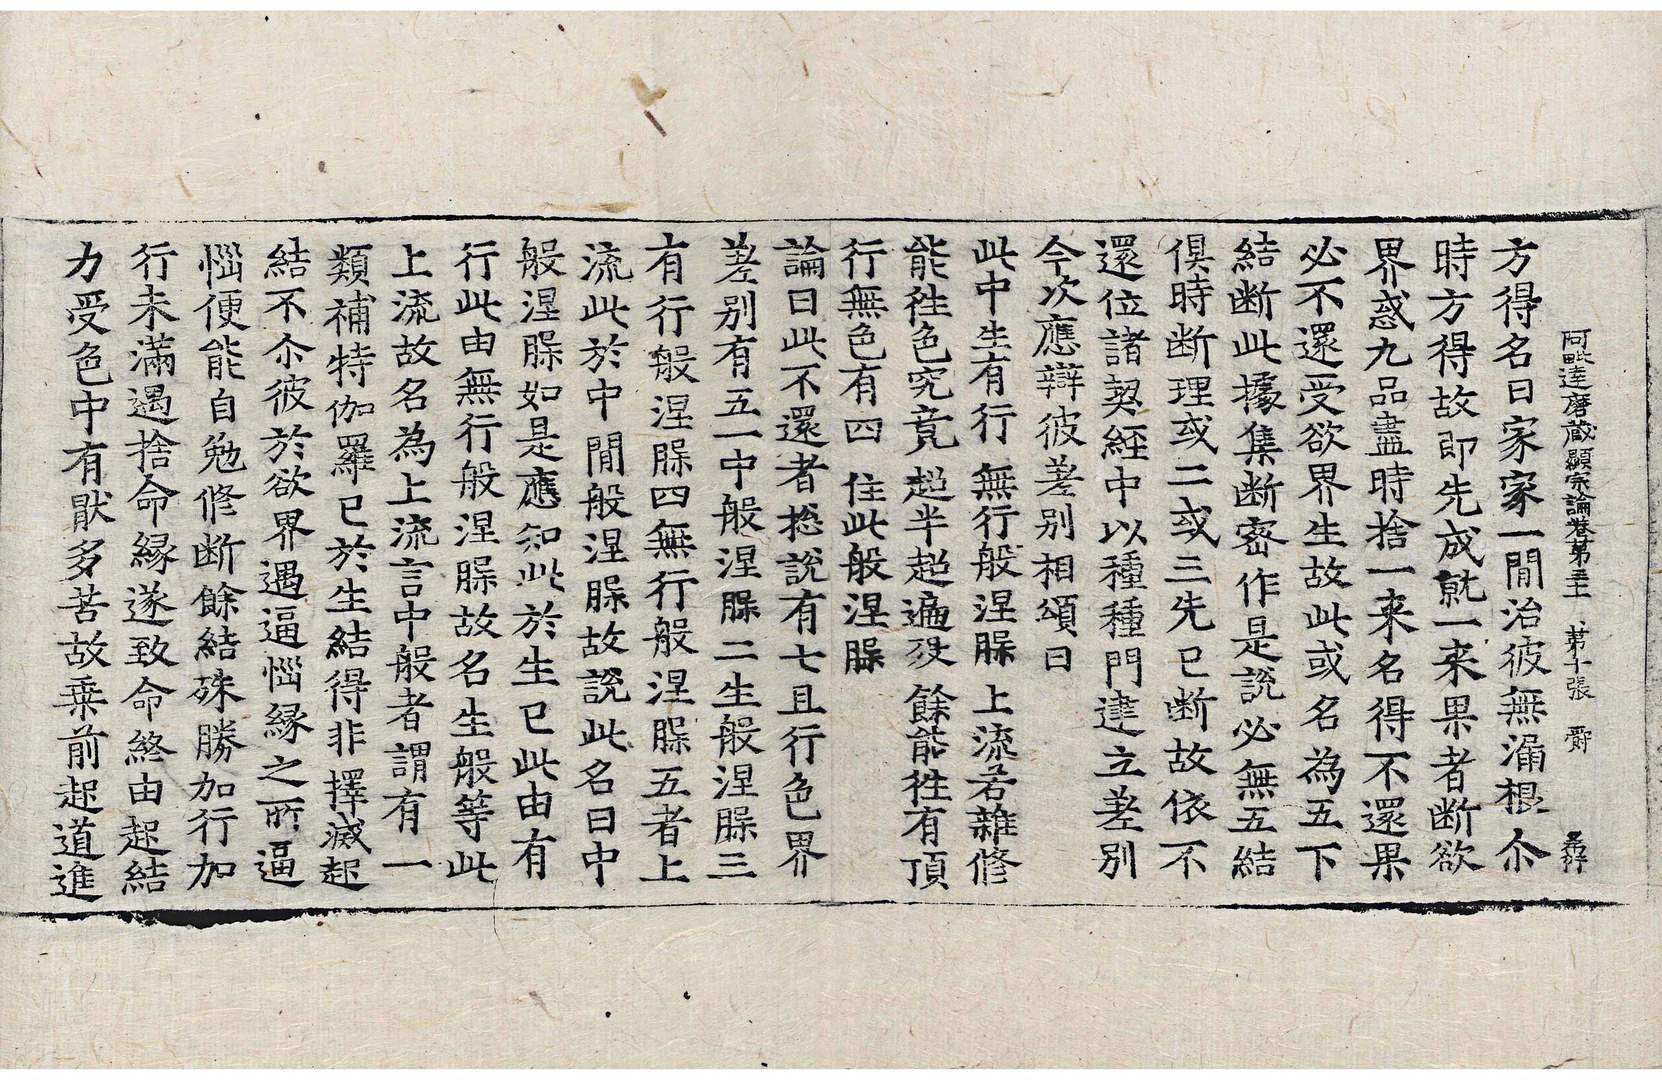 阿毗達磨蔵顯宗論卷第 第十張 爵
方得名曰家家一閒治彼無漏根尒
時方得故即先成就一来果者断欲
界惑九品盡時捨一来名得不還果
必不還受欲界生故此或名為五下
結断此㩀集断密作是説必無五結
俱時断理或二或三先已断故依不
還位諸契經中以種種門建立差别
今次應辯彼差别相頌曰
此中生有行 無行般涅槃 上流若雜修
能徃色究竟 超半超遍殁 餘能徃有頂
行無色有四 住此般涅槃
論曰此不還者捴説有七且行色界
差别有五一中般涅槃二生般涅槃三
有行般涅槃四無行般涅槃五者上
流此於中閒般涅槃故説此名曰中
般涅槃如是應知此於生已此由有
行此由無行般涅槃故名生般等此
上流故名為上流言中般者謂有一
類補特伽羅已於生結得非擇滅起
結不尒彼於欲界遇逼惱緣之所逼
惱便能自勉修断餘結殊勝加行加
行未滿遇捨命緣遂致命終由起結
力受色中有猒多苦故乗前起道進